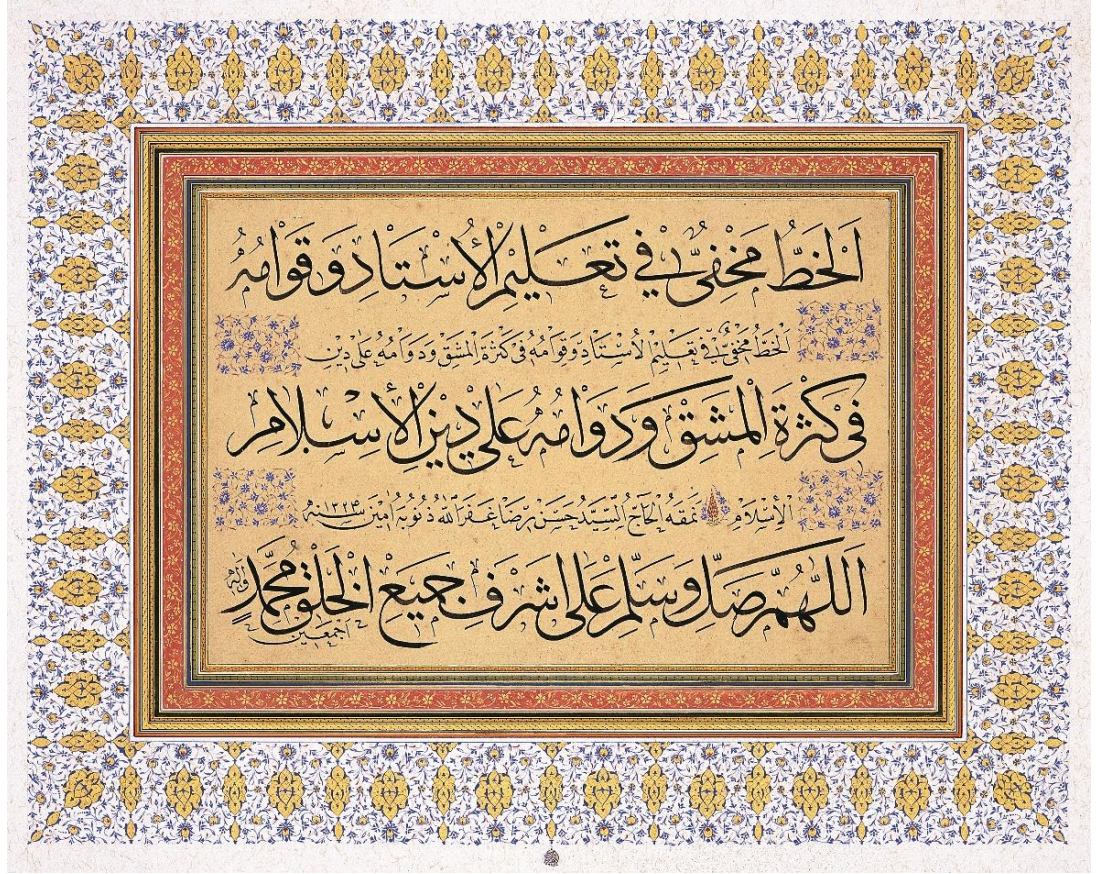 اَلْخَطُّ مَخْفِىٌّ فِى تَعْلِيْمِ الْأُسْتَادِ وَقَوَامُهُ
اَلْخَطُّ مَخْفِىٌّ فِى تَعْلِيْمِ الْأُسْتَادِ وَقِوَامُهُ فِى كَثْرَةِ الْمَشْقِ وَدَوَامُهُ عَلٰى دِيْنِ
فِى كَثْرَةِ الْمَشْقِ وَدَوَامُهُ عَلٰى دِيْنِ الْإِسْلَامِ
الْإِسْلَامِ نَمَقَهُ الْحَاجُّ السَّيِّدُ حَسَنْ رِضَا غَفَرَ اللّٰهُ ذُنُوبَهُ اٰمِيْنَ سنه ١٣٢٣
اَللّٰهُمَّ صَلِّ وَسَلِّمْ عَلٰى اَشْرَفِ جَمِيْعِ الْخَلْقِ مُحَمَّدٍ وَاٰلِهِ اَجْمَعِيْنَ